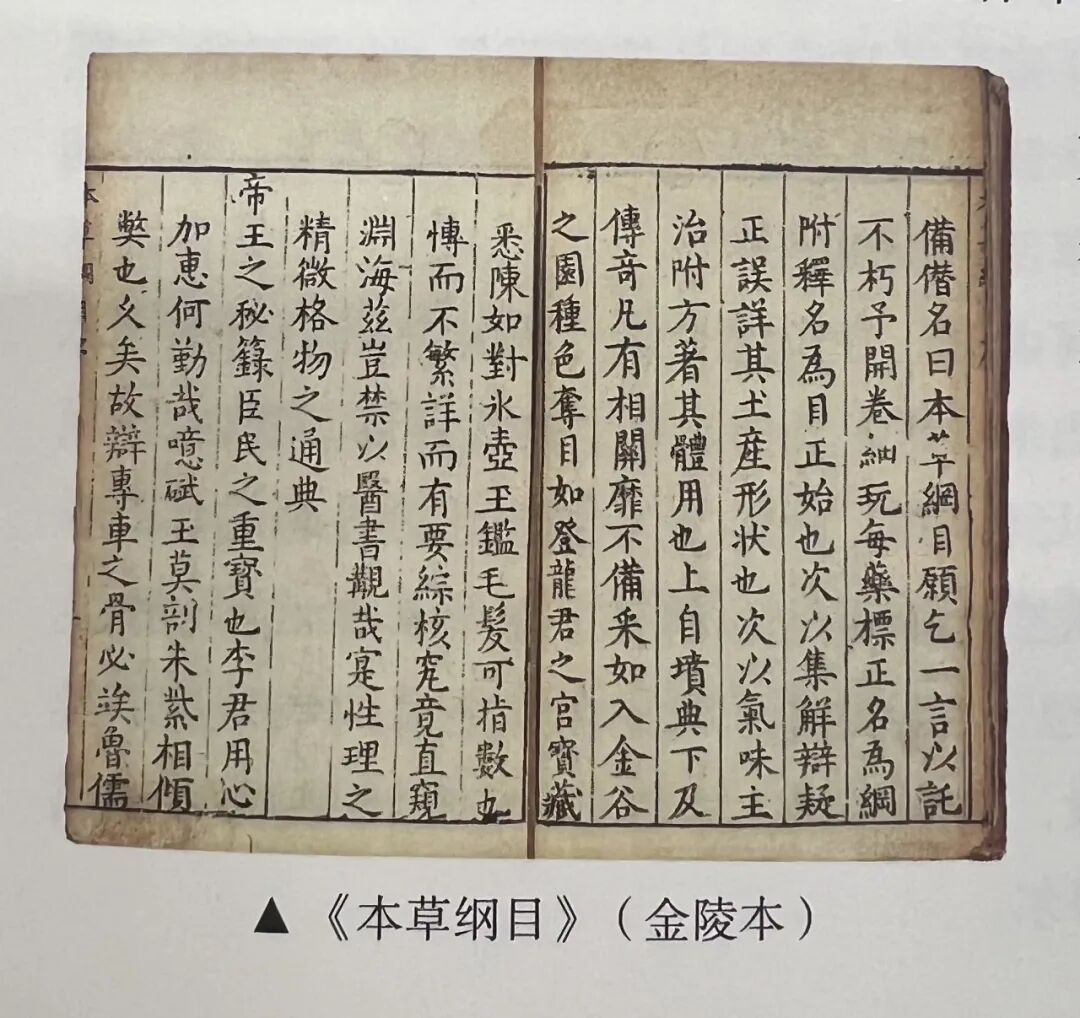 備僭名曰本草綱目願乞一言以託
不朽予開卷細玩每藥標正名為綱
附釋名為目正始也次以集解辯疑
正誤詳其土產形狀也次以氣味主
治附方著其體用也上自墳典下及
傳奇凡有相關靡不備采如入金谷
之園種色奪目如登龍君之宮寶藏
悉陳如對氷壺玉鑑毛髮可指數也
愽而不繁詳而有要綜核究竟直窺
淵海茲豈禁以醫書覯哉寔性理之
精微格物之通典
帝王之秘籙臣民之重寶也李君用心
加惠何勤哉噫碔玉莫剖朱紫相傾
弊也久矣故辯專車之骨必竢魯儒
▲《本草纲目》（金陵本）